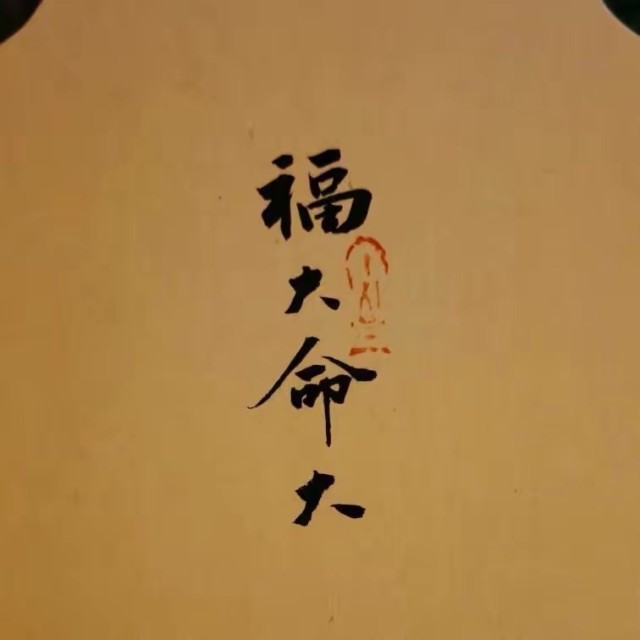 福大命大